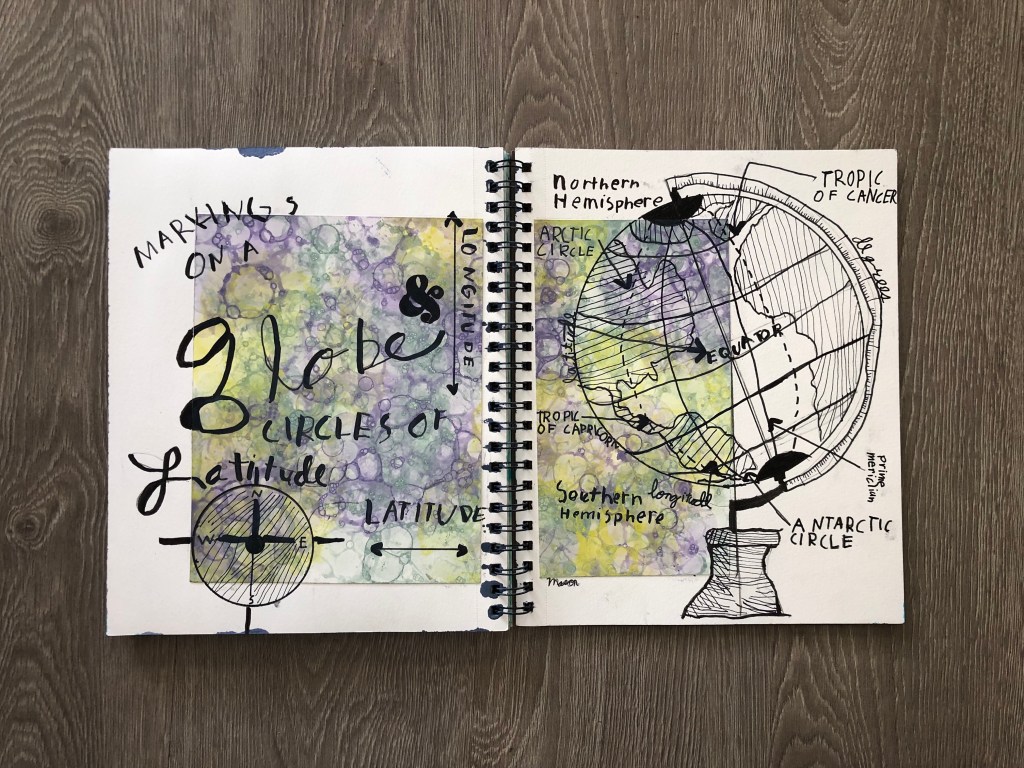 MARKINGS
ON A
globe
&
CIRCLES OF
Latitude
LONGITUDE
LATITUDE
N
W E
S
Northern
Hemisphere
TROPIC
OF CANCER
ARCTIC
CIRCLE
degrees
latitude
EQUATOR
TROPIC
OF CAPRICORN
prime
meridian
Southern
Hemisphere
longitude
ANTARCTIC
CIRCLE
Mason